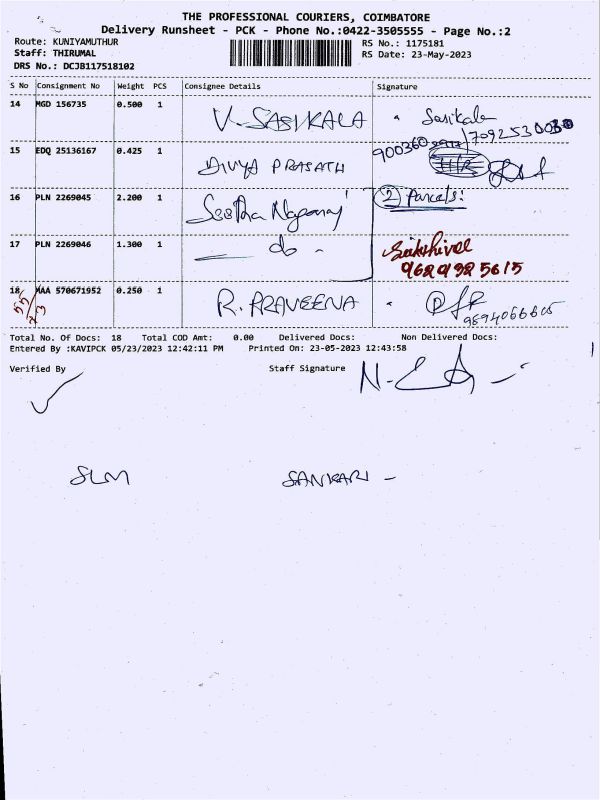 THE PROFESSIONAL COURIERS, COIMBATORE
Delivery Runsheet - PCK - Phone No.:0422-3505555 - Page No.:2
Route: KUNIYAMUTHUR
RS No.: 1175181
Staff: THIRUMAL
RS Date: 23-May-2023
DRS No.: DCJB117518102
S No Consignment No Weight PCS Consignee Details Signature
14 MGD 156735 0.500 1 V-SASIKALA Sasikala
7092530030
15 EDQ 25136167 0.425 1 DIVYA PRASATH 900360
16 PLN 2269045 2.200 1 Seetha (2) Parcels:
17 PLN 2269046 1.300 1 - do - Sakthivel
9629325615
18 MAA 570671952 0.250 1 R. PRAVEENA
55/73
9894066605
Total No. Of Docs: 18 Total COD Amt: 0.00 Delivered Docs: Non Delivered Docs:
Entered By :KAVIPCK 05/23/2023 12:42:11 PM Printed On: 23-05-2023 12:43:58
Verified By Staff Signature
SLM SANKARI -